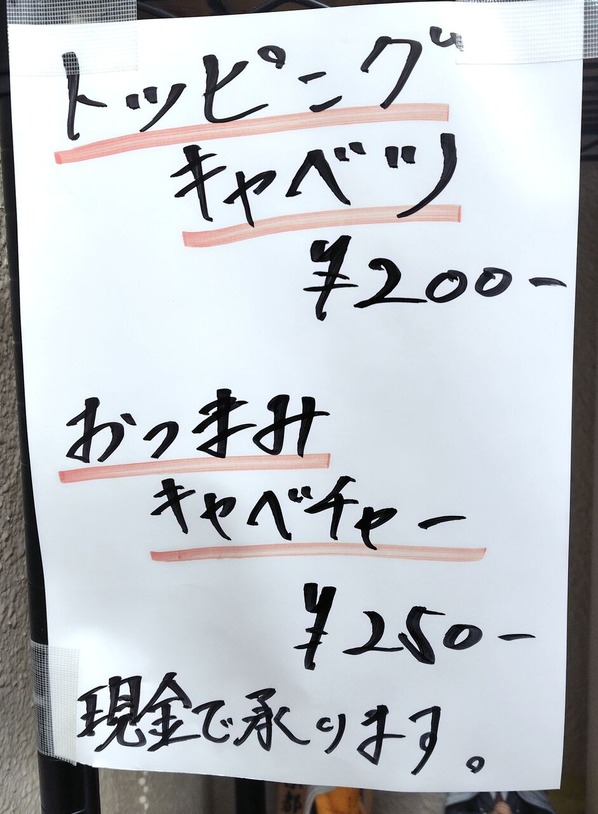 トッピング
キャベツ
¥200-
おつまみ
キャベチャー
¥250-
現金で承ります。